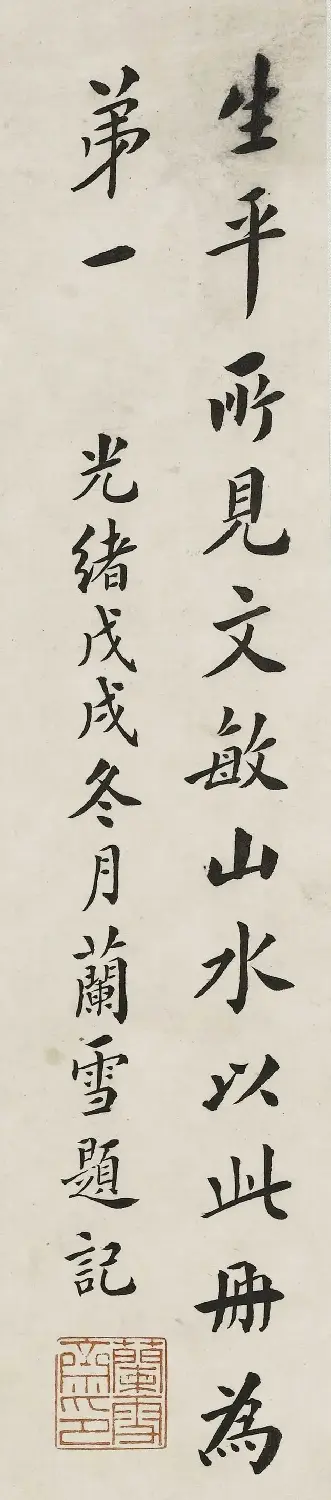 生平所見文敏山水以此冊為
弟一
光緒戊戌冬月蘭雪題記
蘭雪齋印